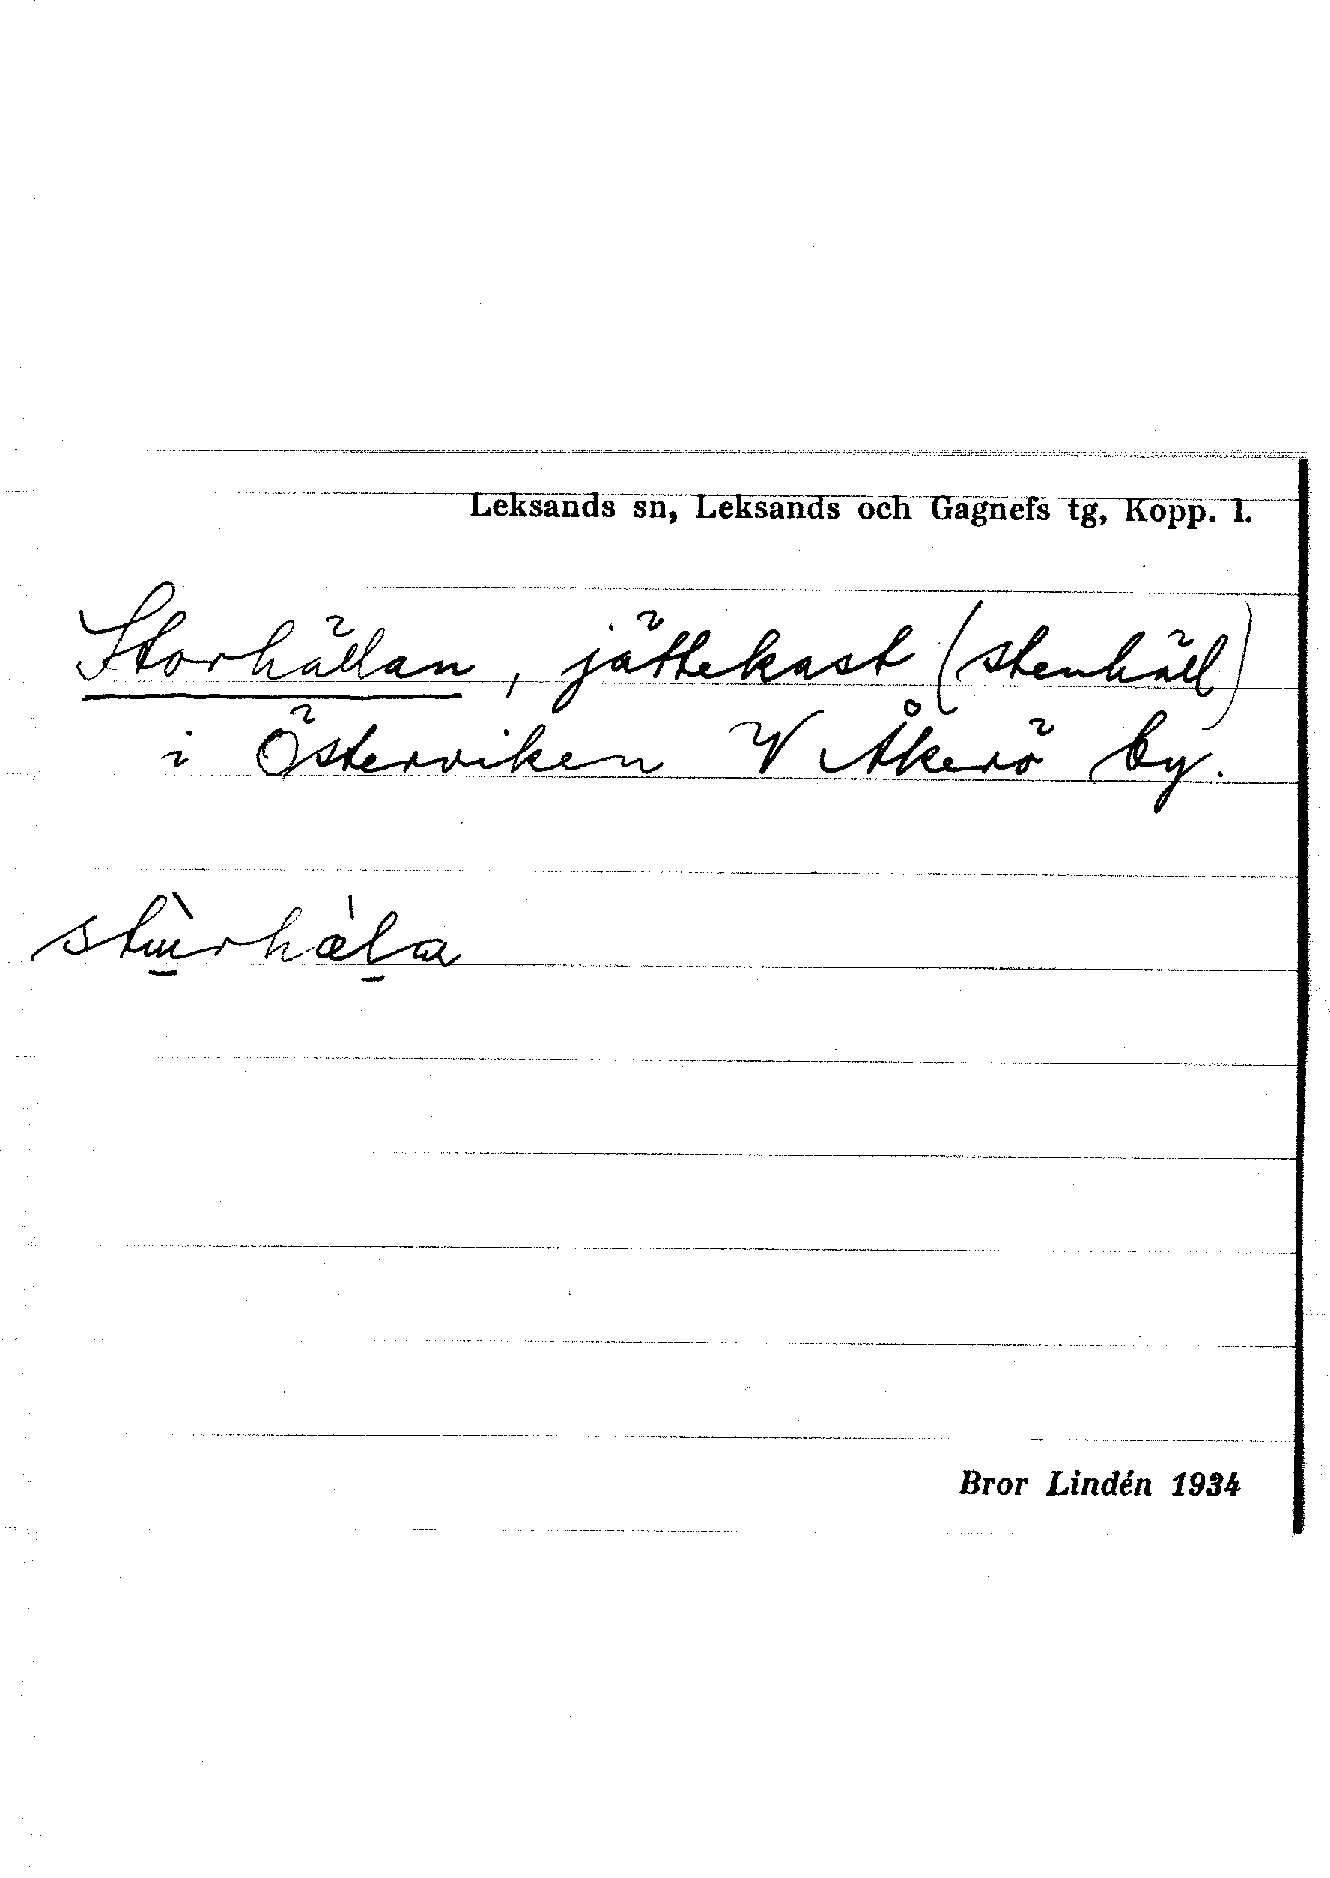 Leksands sn, Leksands och Gagnefs tg, Kopp. l.
Storhällan, jättekast (stenhäll)
i Österviken V Åkerö by.
stu̱̇̀rhæ̀ḻa
Bror Lindén 1934